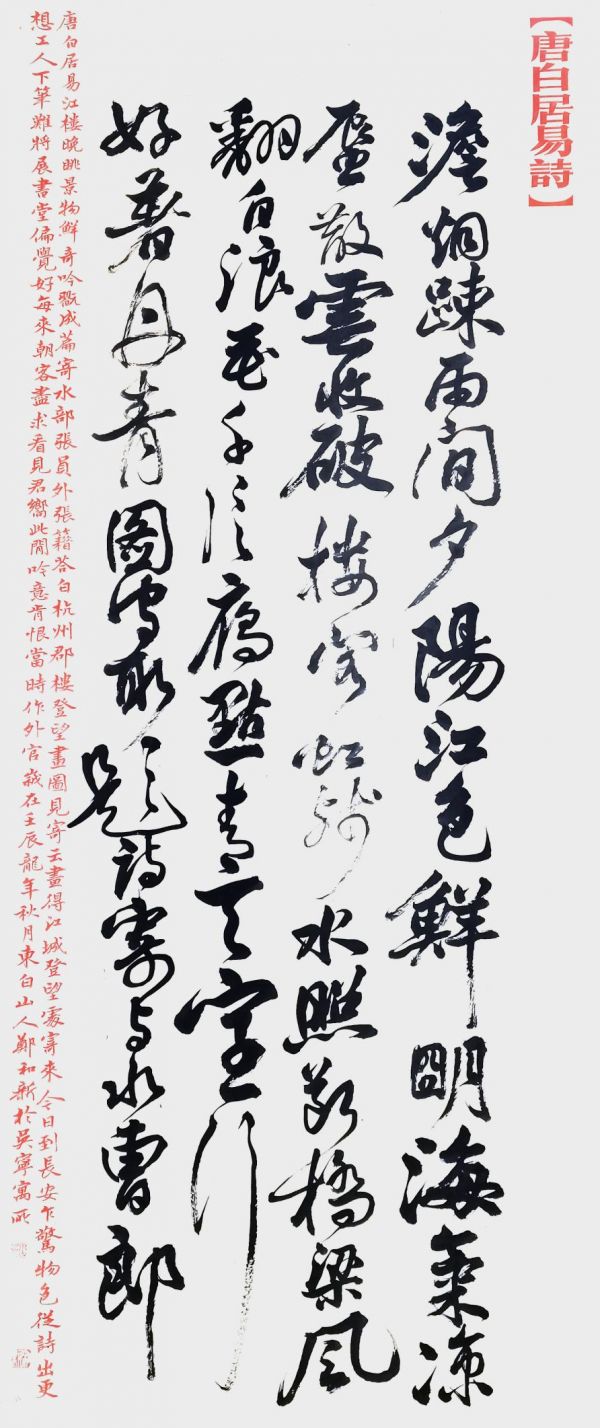 【唐白居易詩】
澹烟踈雨間夕陽江色鮮明海氣凉
蜃散雲收破楼阁虹残水照断橋梁風
翻白浪花千片雁點青天字一行
好著丹青圖写取题诗寄与水曹郎
唐白居易江樓晚眺景物鮮奇吟翫成篇寄水部張員外張籍答白杭州郡樓登望畫圖見寄云畫得江城登望處寄來今日到長安乍驚物色從詩出更
想工人下筆難將展書堂偏覺好每來朝客盡求看見君嚮此閒吟意肯恨當時作外官歲在壬辰龍年秋月東白山人鄭和新於吳寧寓所